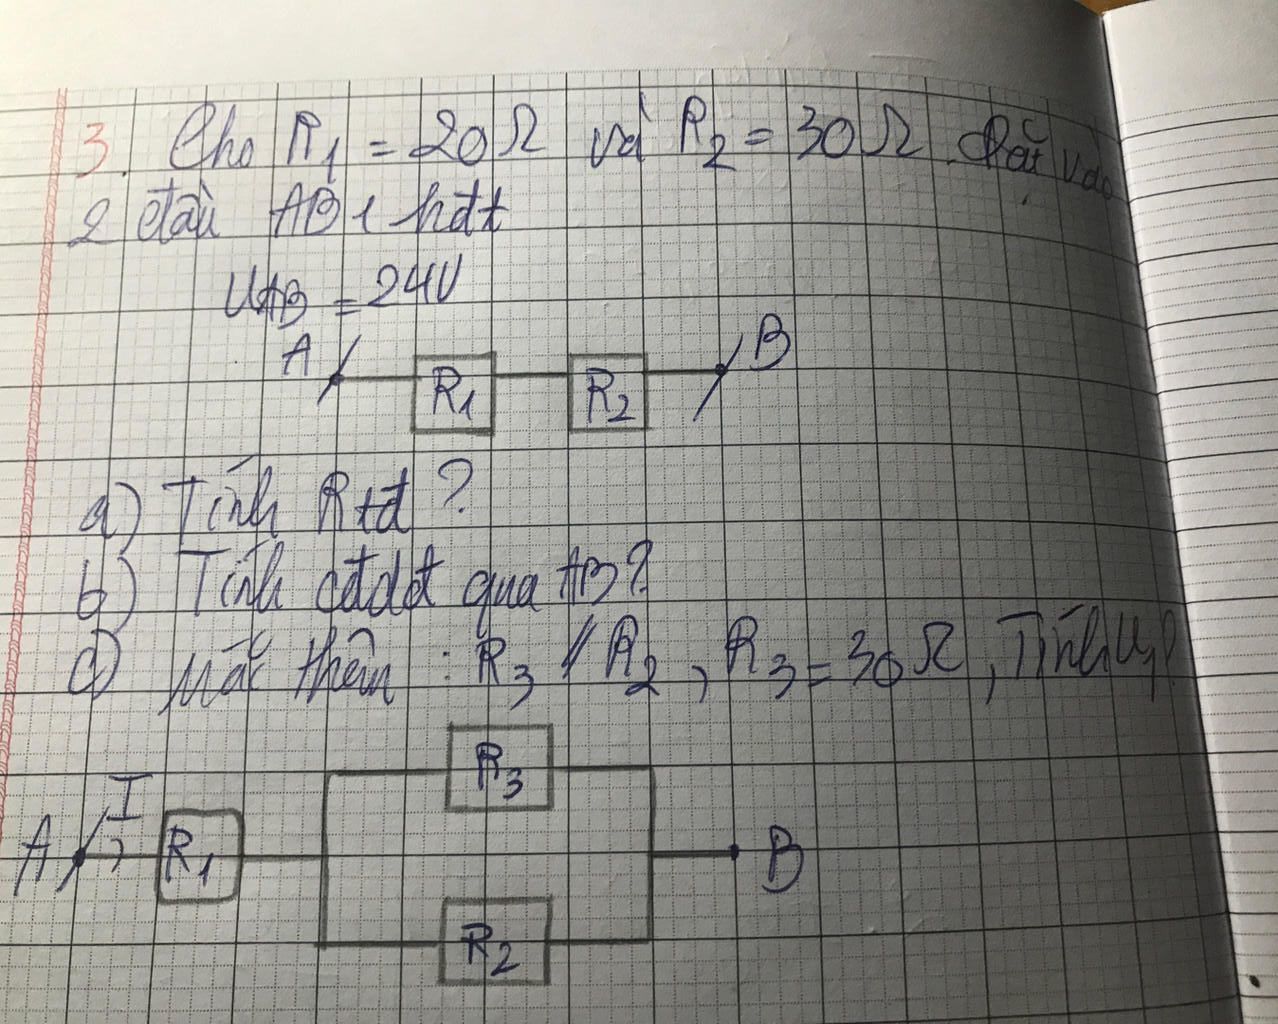 3. Cho R1 = 20Ω và R2 = 30Ω. Đặt vào
2 đầu AB 1 hđt
UAB = 24V
A R1 R2 B
a) Tính Rtđ?
b) Tính cđdđ qua AB?
c) Mắc thêm: R3 // R2, R3 = 30Ω, Tính U1?
R3
A I R1 B
R2